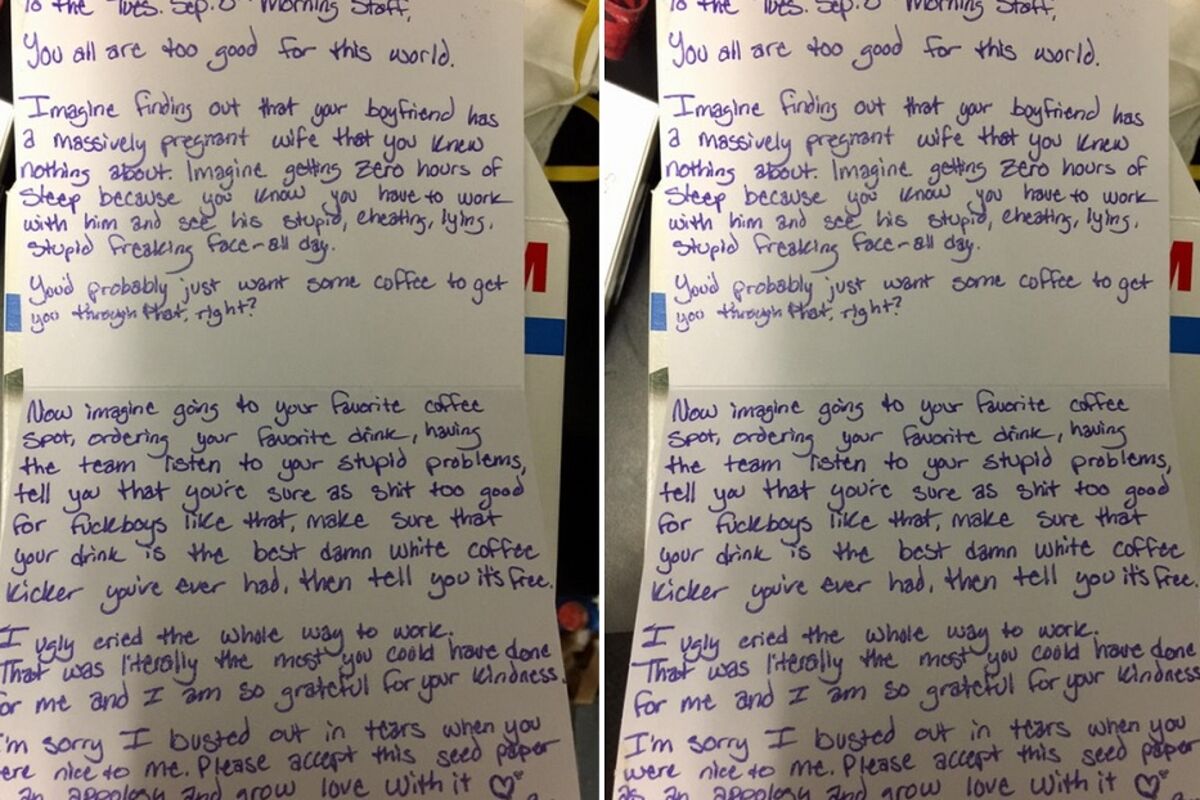 To the Tues. Sep. Morning Staff,
You all are too good for this world.
Imagine finding out that your boyfriend has
a massively pregnant wife that you knew
nothing about. Imagine getting zero hours of
sleep because you know you have to work
with him and see his stupid, cheating, lying,
stupid freaking face-all day.
You'd probably just want some coffee to get
you through that, right?
Now imagine going to your favorite coffee
spot, ordering your favorite drink, having
the team listen to your stupid problems,
tell you that you're sure as shit too good
for fuckboys like that, make sure that
your drink is the best damn white coffee
kicker you've ever had, then tell you it's free.
I ugly cried the whole way to work.
That was literally the most you could have done
or me and I am so grateful for your kindness.
I'm sorry I busted out in tears when you
ere nice to me. Please accept this seed paper
an apology and grow love with it ♡
M
To the Tues. Sep. Morning Staff,
You all are too good for this world.
Imagine finding out that your boyfriend has
a massively pregnant wife that you knew
nothing about. Imagine getting zero hours of
sleep because you know you have to work
with him and see his stupid, cheating, lying,
stupid freaking face-all day.
You'd probably just want some coffee to get
you through that, right?
Now imagine going to your favorite coffee
spot, ordering your favorite drink, having
the team listen to your stupid problems,
tell you that you're sure as shit too good
for fuckboys like that, make sure that
your drink is the best damn white coffee
kicker you've ever had, then tell you it's free
I ugly cried the whole way to work.
That was literally the most you could have done
for me and I am so grateful for your kindness
I'm sorry I busted out in tears when you
were nice to me. Please accept this seed paper
as an apology and grow love with it ♡
M